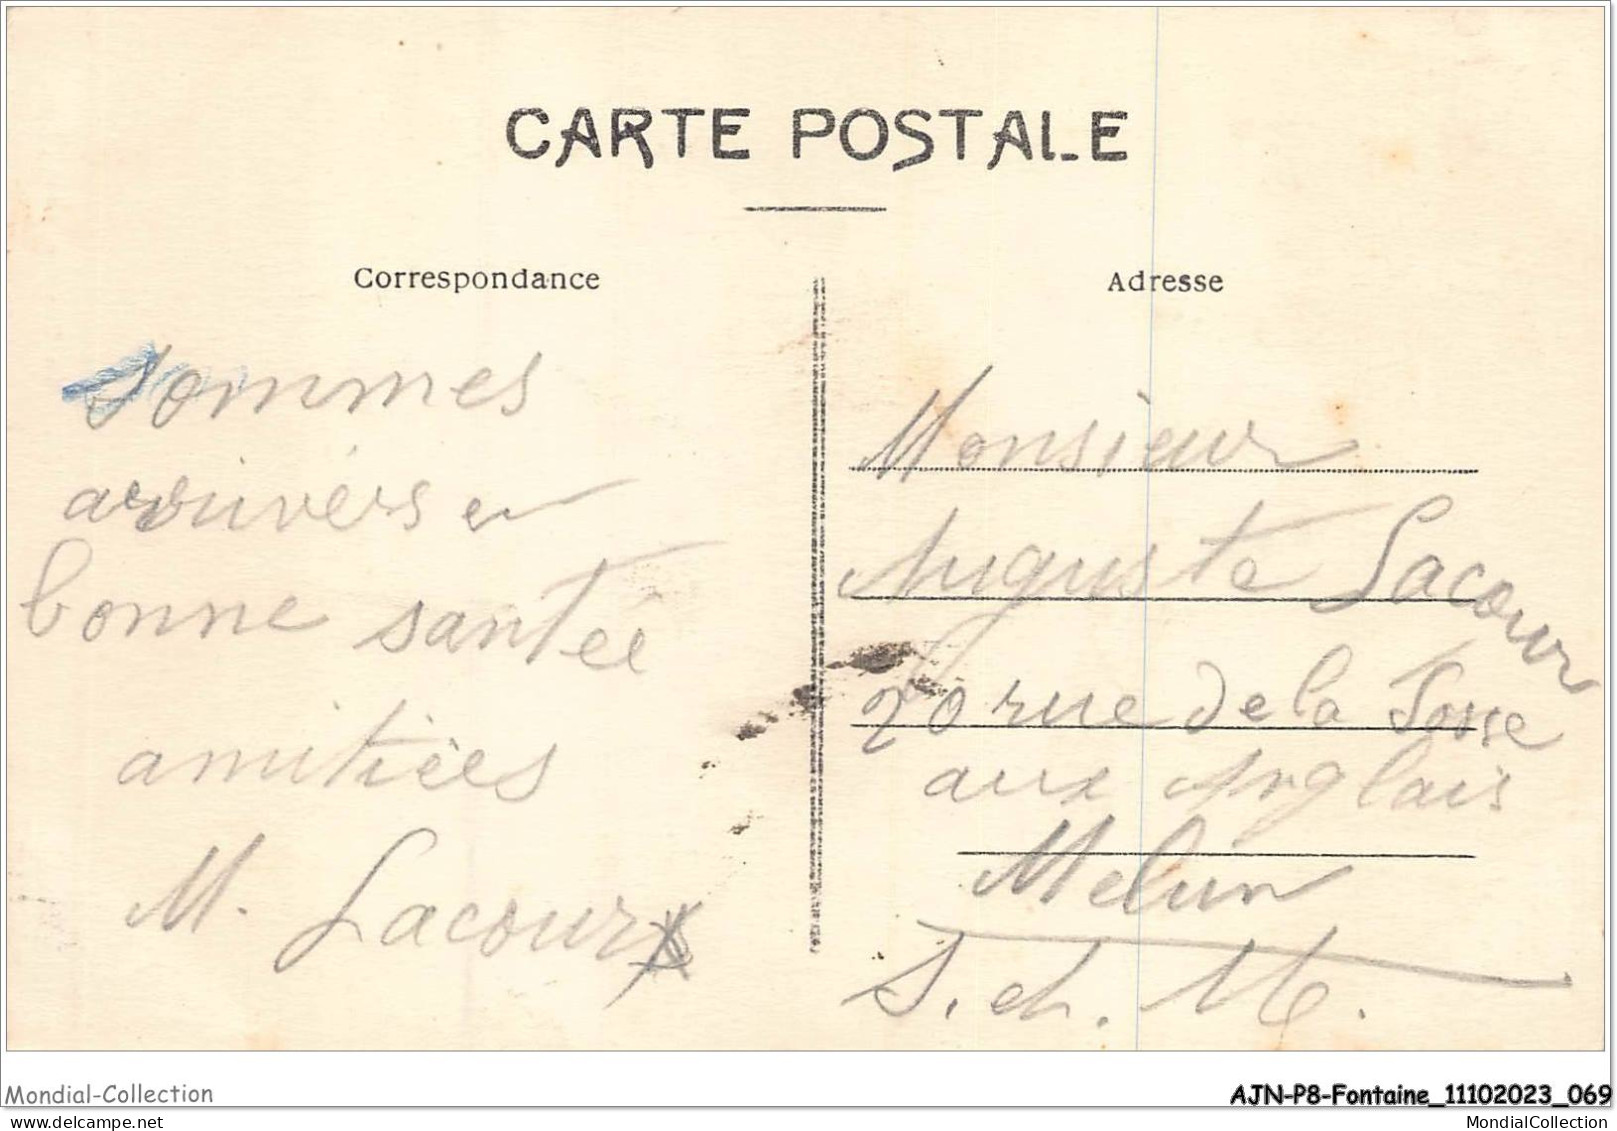 CARTE POSTALE
Correspondance
Adresse
Sommes
arrivés en
bonne santée
amitiées
M. Lacour
Monsieur
Auguste Lacour
20 rue de la Fosse
aux Anglais
Melun
S. et. M.
Mondial-Collection
AJN-P8-Fontaine_11102023_069
delcampe.net
MondialCollection